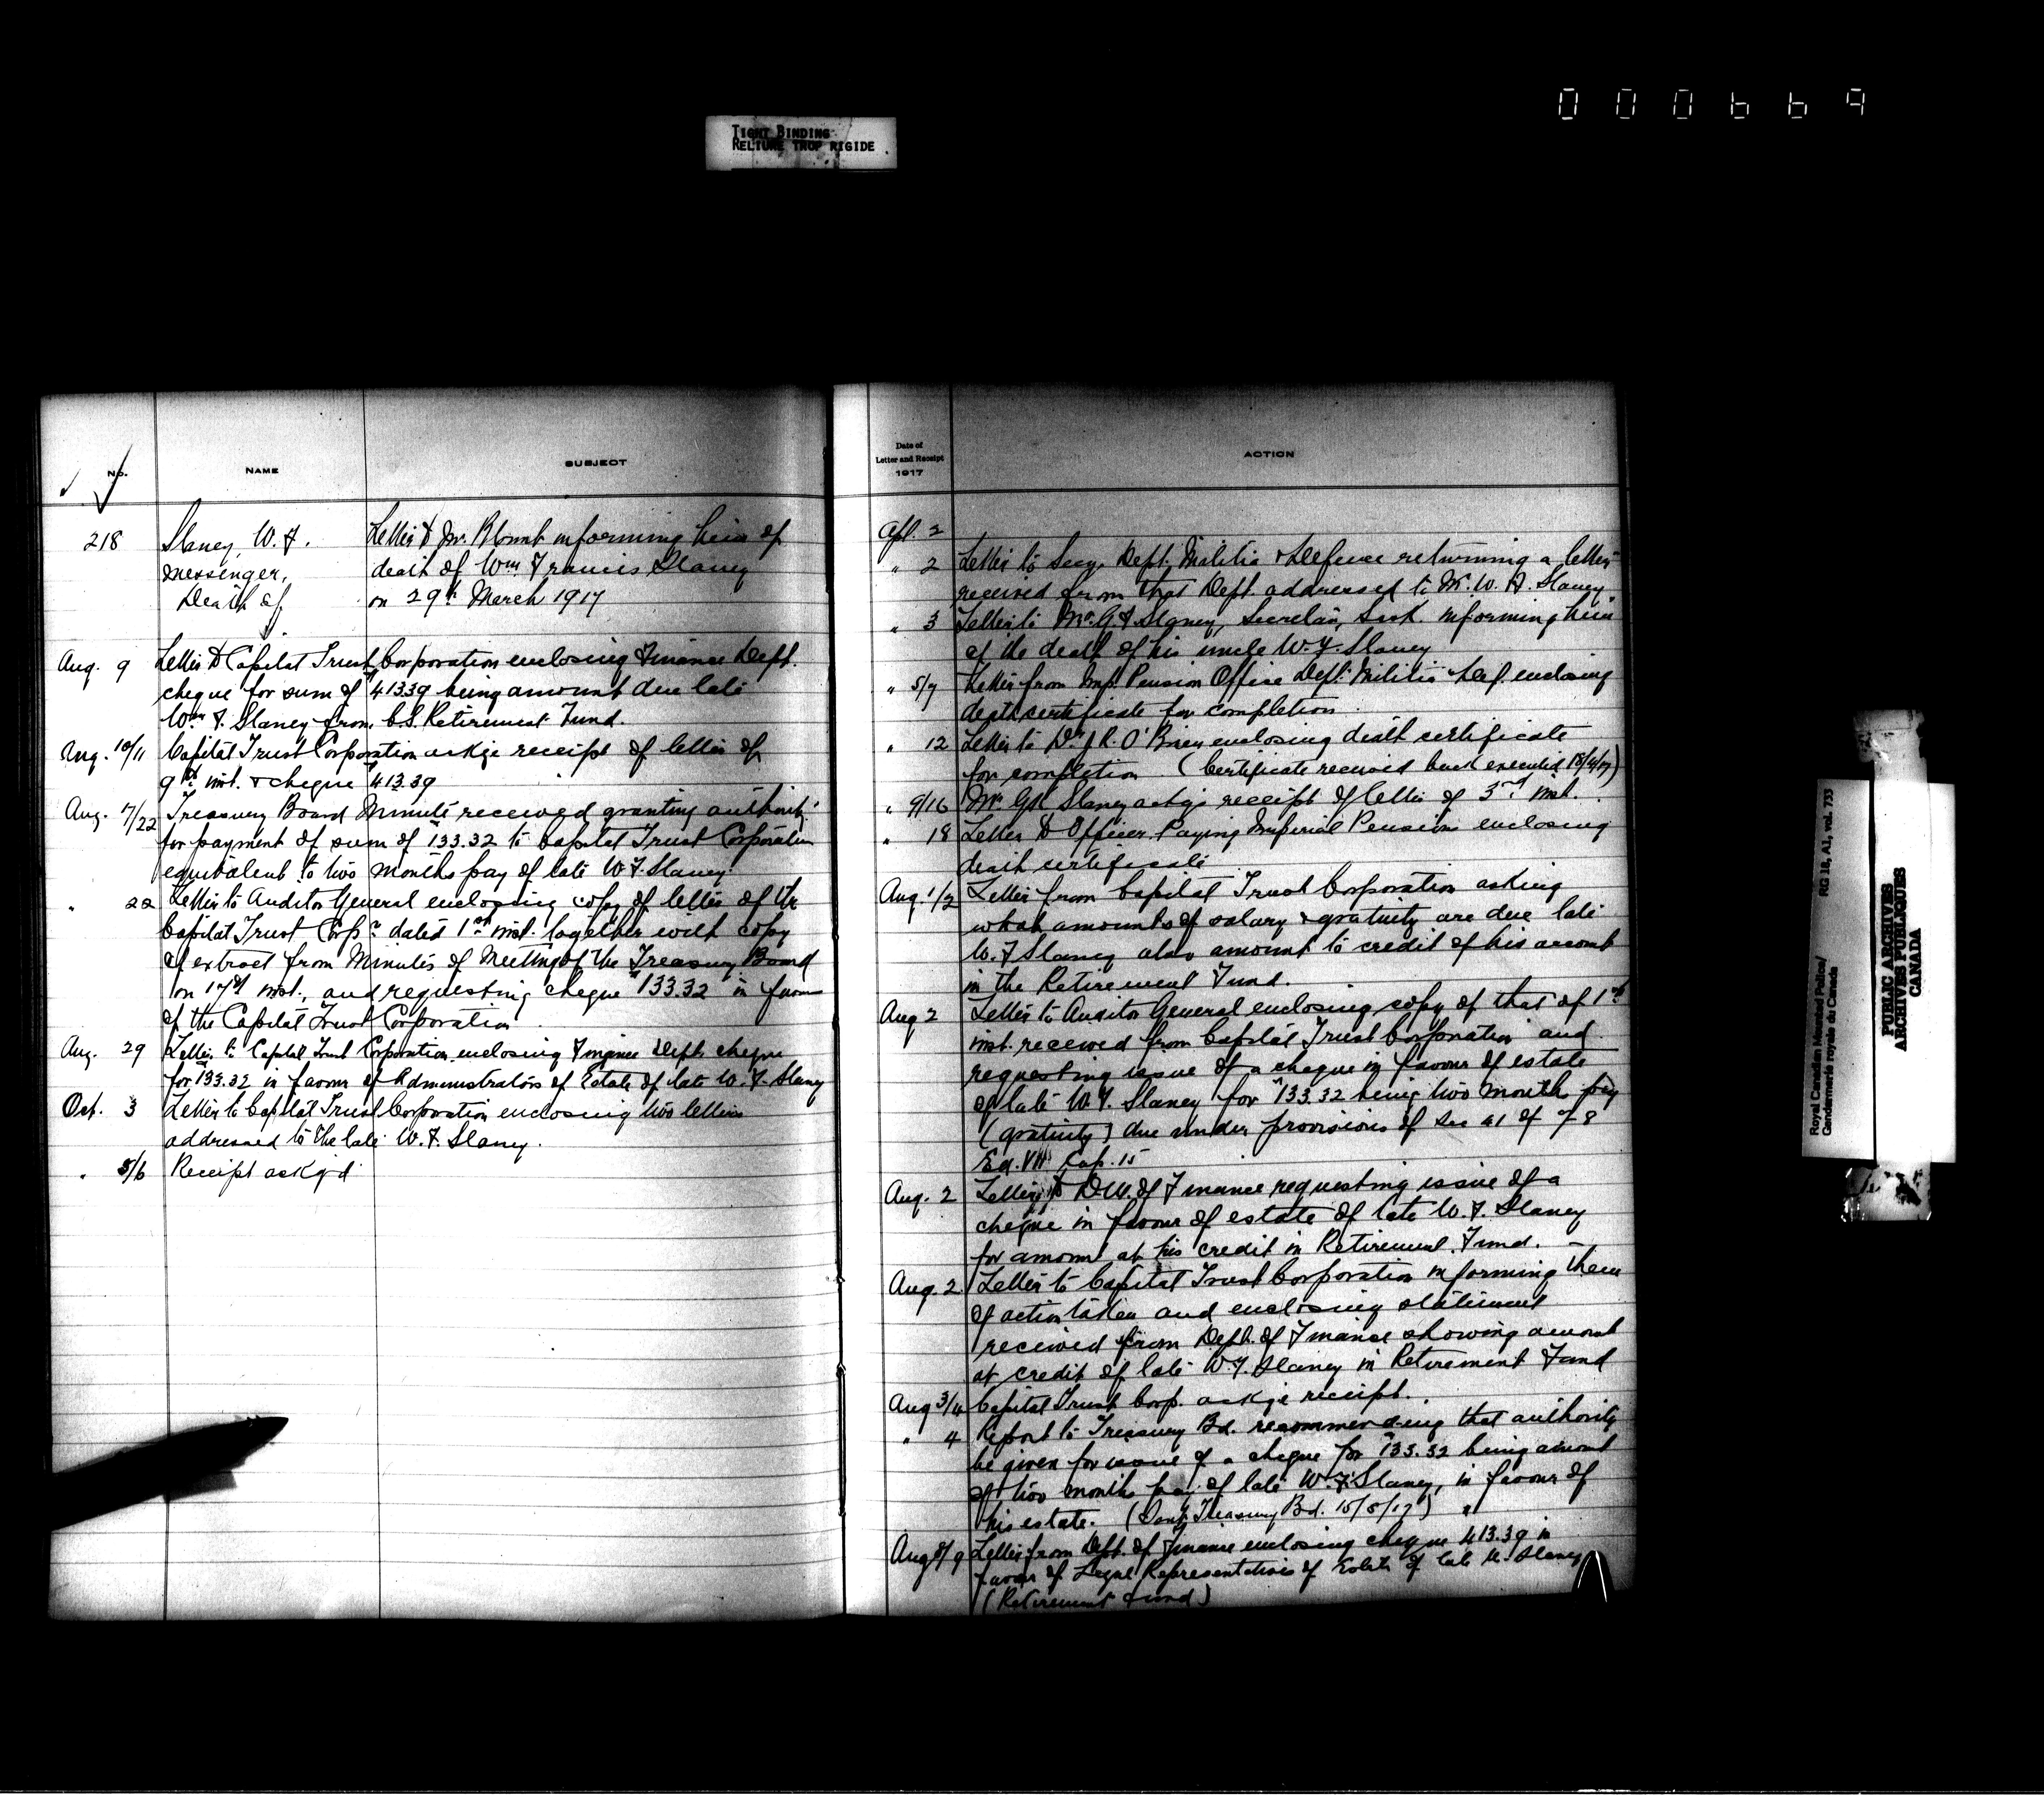 000669
TIGHT BINDING
RELIURE TROP RIGIDE
No.
NAME
SUBJECT
218
Slaney, W. F.
messenger,
Death of
Letter to Mr. Blount informing him of
death of Wm. Francis Slaney
on 29th March 1917
Aug. 9 Letter to Capital Trust Corporation enclosing Finance Dept.
cheque for sum of $413.39 being amount due late
Wm. F. Slaney from C.S. Retirement Fund.
Aug. 10/11 Capital Trust Corporation askge receipt of letter of
9th inst. & cheque $413.39
Aug. 17/22 Treasury Board Minute received granting authority
for payment of sum of $133.32 to Capital Trust Corporation
equivalent to two months pay of late W. F. Slaney.
" 22 Letter to Auditor General enclosing copy of letter of the
Capital Trust Corpn. dated 1st inst. together with copy
of extract from Minutes of Meeting of the Treasury Board
on 17th inst., and requesting cheque $133.32 in favour
of the Capital Trust Corporation.
Aug. 29 Letter to Capital Trust Corporation enclosing Finance Dept. cheque
for $133.32 in favour of Administrators of Estate of late W. F. Slaney
Oct. 3 Letter to Capital Trust Corporation enclosing two letters
addressed to the late W. F. Slaney.
" 5/6 Receipt askg'd
Date of
Letter and Receipt
1917
ACTION
Apl. 2
" 2 Letter to Secy. Dept. Militia & Defence returning a letter
received from that Dept. addressed to Mr. W. F. Slaney
" 3 Letter to Mr. G. Slaney, Sask. informing him
of the death of his uncle W. F. Slaney
" 5/7 Letter from Imp. Pension Office Dept. Militia & Def. enclosing
death certificate for completion.
" 12 Letter to Dr. J. R. O'Brien enclosing death certificate
for completion (Certificate received back executed 18/4/17)
" 9/16 Mr. Slaney askg's receipt of letter of 3rd inst.
" 18 Letter to Officer Paying Imperial Pensions enclosing
death certificate
Aug 1/2 Letter from Capital Trust Corporation asking
what amounts of salary & gratuity are due late
W. F. Slaney also amount to credit of his account
in the Retirement Fund.
Aug 2 Letter to Auditor General enclosing copy of that of 1st
inst. received from Capital Trust Corporation and
requesting issue of a cheque in favour of estate
of late W. F. Slaney for $133.32 being two months pay
(gratuity) due under provisions of Sec 41 of 7-8
Ed. VII Cap. 15
Aug. 2 Letter to D.M. of Finance requesting issue of a
cheque in favour of estate of late W. F. Slaney
for amount at his credit in Retirement Fund.
Aug. 2 Letter to Capital Trust Corporation informing them
of action taken and enclosing statement
received from Dept. of Finance showing amount
at credit of late W. F. Slaney in Retirement Fund
Aug 3/4 Capital Trust Corp. askge receipt.
" 4 Report to Treasury Bd. recommending that authority
be given for issue of a cheque for $133.32 being amount
of two months pay of late W. F. Slaney, in favour of
his estate. (Treasury Bd. 15/8/17)
Aug 8/9 Letter from Dept. of Finance enclosing cheque $413.39 in
favour of Legal Representatives of Estate of late W. Slaney
(Retirement Fund)
Royal Canadian Mounted Police/
Gendarmerie royale du Canada
RG 18, A1, vol. 733
PUBLIC ARCHIVES
ARCHIVES PUBLIQUES
CANADA